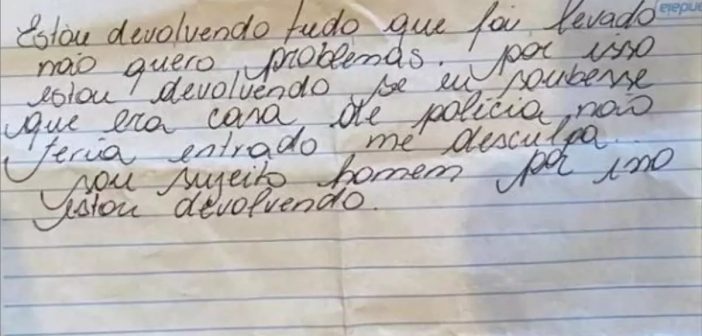 Estou devolvendo tudo que foi levado
não quero problemas. por isso
estou devolvendo, se eu soubesse
que era casa de policia, não
teria entrado me desculpa.
sou sujeito homem por isso
estou devolvendo.